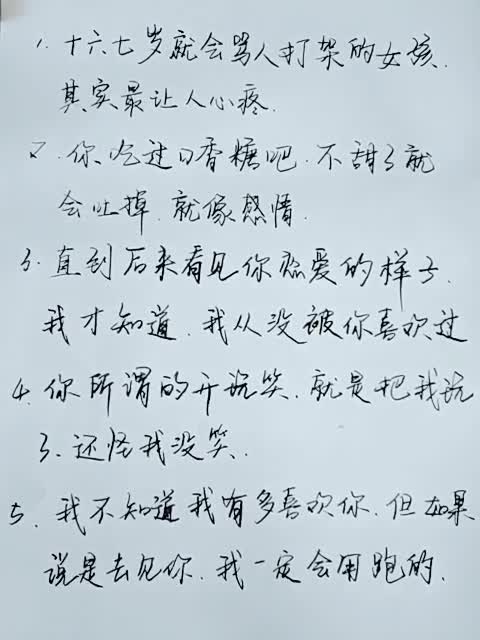 1. 十六七岁就会骂人打架的女孩.
其实最让人心疼.
2. 你吃过口香糖吧. 不甜了就
会吐掉. 就像感情.
3. 直到后来看见你恋爱的样子.
我才知道. 我从没被你喜欢过
4. 你所谓的开玩笑. 就是把我说
了. 还怪我没笑.
5. 我不知道我有多喜欢你. 但如果
说是去见你. 我一定会用跑的.